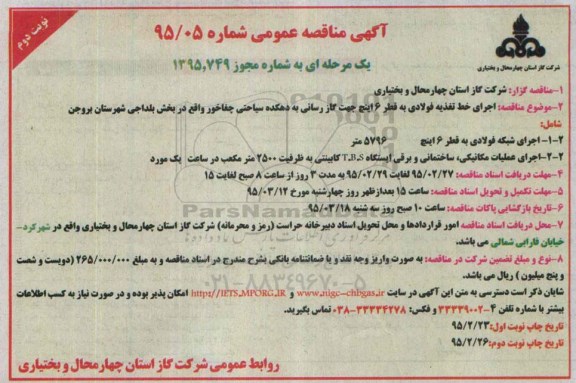 نوبت دوم
آگهی مناقصه عمومی شماره ۹۵/۰۵
یک مرحله ای به شماره مجوز ۱۳۹۵,۷۴۹
شرکت گاز استان چهارمحال و بختیاری
۱-مناقصه گزار: شرکت گاز استان چهارمحال و بختیاری
۲-موضوع مناقصه: اجرای خط تغذیه فولادی به قطر ۶ اینچ جهت گاز رسانی به دهکده سیاحتی چغاخور واقع در بخش بلداجی شهرستان بروجن
شامل:
۱-۲-اجرای شبکه فولادی به قطر ۶ اینچ ۵۷۹۶ متر
۲-۲-اجرای عملیات مکانیکی، ساختمانی و برقی ایستگاه T.B.S کابینتی به ظرفیت ۲۵۰۰ متر مکعب در ساعت یک مورد
۴-مهلت دریافت اسناد مناقصه: ۹۵/۰۲/۲۷ لغایت ۹۵/۰۲/۲۹ به مدت ۳ روز از ساعت ۸ صبح لغایت ۱۵
۵-مهلت تکمیل و تحویل اسناد مناقصه: ساعت ۱۵ بعدازظهر روز چهارشنبه مورخ ۹۵/۰۳/۱۲
۶-تاریخ بازگشایی پاکات مناقصه: ساعت ۱۰ صبح روز سه شنبه ۹۵/۰۳/۱۸
۷-محل دریافت اسناد مناقصه امور قراردادها و محل تحویل اسناد دبیرخانه حراست (رمز و محرمانه) شرکت گاز استان چهارمحال و بختیاری واقع در شهرکرد-
خیابان فارابی شمالی می باشد.
۸-نوع و مبلغ تضمین شرکت در مناقصه: به صورت واریز وجه نقد و یا ضمانتنامه بانکی بشرح مندرج در اسناد مناقصه و به مبلغ ۲۶۵/۰۰۰/۰۰۰ (دویست و شصت
و پنج میلیون) ریال می باشد.
شایان ذکر است دسترسی به متن این آگهی در سایت www.nigc-chbgas.ir و http://IETS.MPORG.IR امکان پذیر بوده و در صورت نیاز به کسب اطلاعات
بیشتر با شماره تلفن ۴-۳۳۳۳۹۰۰۲ و فکس: ۳۳۳۳۴۲۷۸-۰۳۸ تماس بگیرید.
تاریخ چاپ نوبت اول: ۹۵/۲/۲۳
تاریخ چاپ نوبت دوم: ۹۵/۲/۲۶
روابط عمومی شرکت گاز استان چهارمحال و بختیاری
ParsNamadData
۰۲۱-۸۸۳۴۹۶۷۰-۵